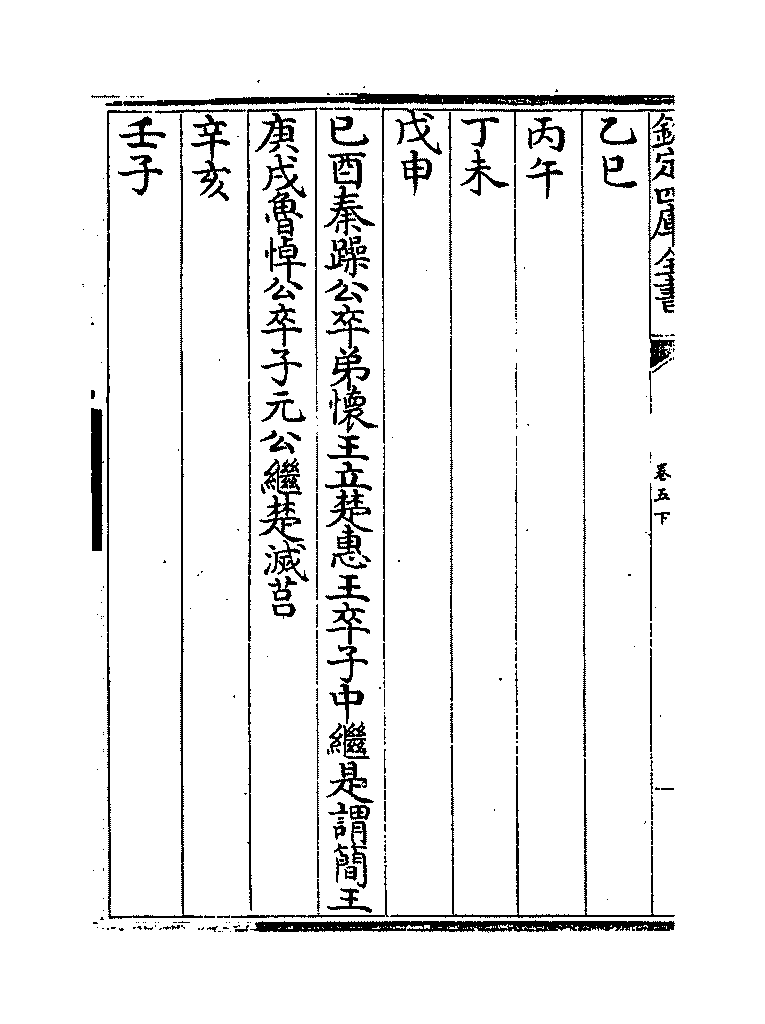 欽定四庫全書
卷五下
乙巳
丙午
丁未
戊申
己酉秦躁公卒弟懷王立楚惠王卒子中繼是謂簡王
庚戌魯悼公卒子元公繼楚滅莒
辛亥
壬子